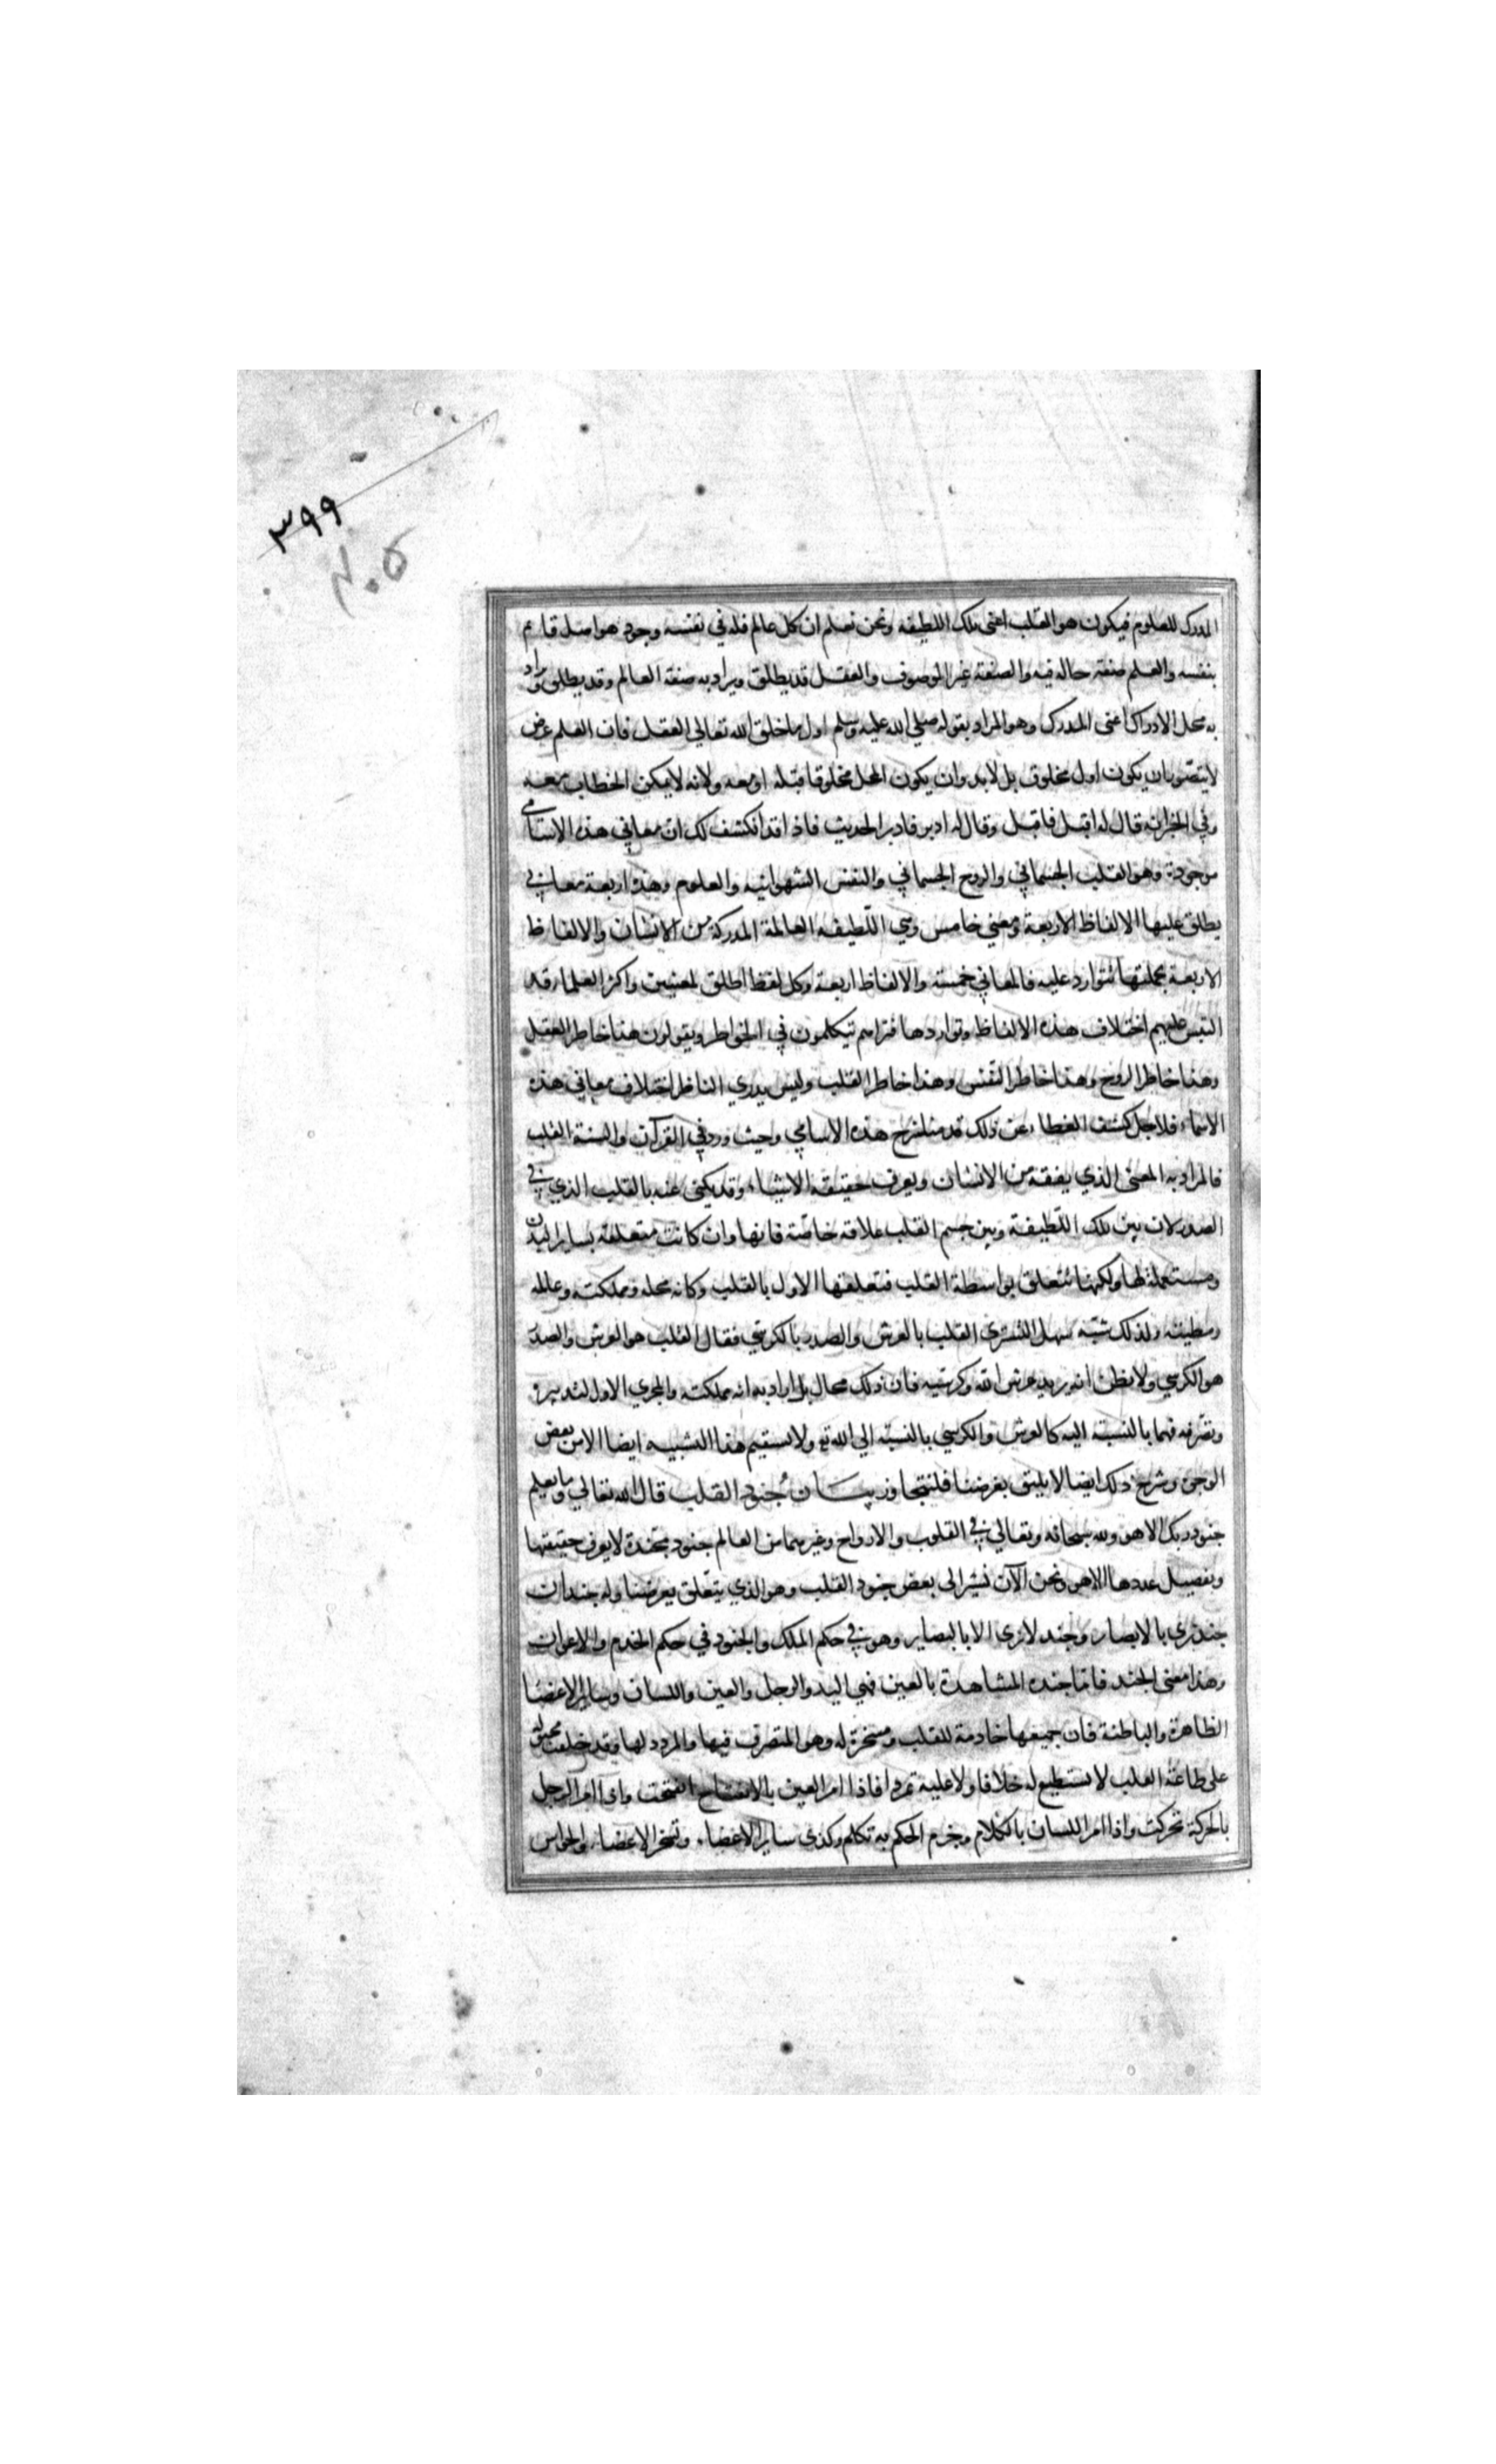 ٣٩٩
المدرك للعلوم فيكون هو القلب اعنى تلك اللطيفه ونحن نعلم ان كل عالم فله في نفسه وجود هو اصل قايم
بنفسه والعلم صفة حاله فيه والصفة غير الموصوف والعقل قد يطلق ويراد به صفة العالم وقد يطلق ويراد
به محل الادراك اعنى المدرك وهو المراد بقوله صلي الله عليه وسلم اول ما خلق الله تعالي العقل فان العلم عرض
لا يتصور ان يكون اول مخلوق بل لابد وان يكون المحل مخلوقا قبله او معه ولانه لا يمكن الخطاب معه
وفي الخبر انه قال له اقبل فاقبل وقال له ادبر فادبر الحديث فاذا قد انكشف لك ان معاني هذه الاسامي
موجودة وهو القلب الجسماني والروح الجسماني والنفس الشهوانيه والعلوم وهذه اربعة معان
يطلق عليها الالفاظ الاربعة ومعني خامس وهي اللطيفه العالمة المدركة من الانسان والالفاظ
الاربعة بجملتها تتوارد عليه فالمعاني خمسة والالفاظ اربعة وكل لفظ اطلق لمعنيين واكثر العلماء قد
التبس عليهم اختلاف هذه الالفاظ وتواردها فتراهم يتكلمون في الخواطر ويقولون هذا خاطر العقل
وهذا خاطر الروح وهذا خاطر النفس وهذا خاطر القلب وليس يدري الناظر اختلاف معاني هذه
الاسماء فلاجل كشف الغطاء عن ذلك قدمنا شرح هذه الاسامي وحيث ورد في القرآن والسنة القلب
فالمراد به المعنى الذي يفقه من الانسان ويعرف حقيقة الاشياء وقد يكنى عنه بالقلب الذي في
الصدر لان بين تلك اللطيفة وبين جسم القلب علاقه خاصة فانها وان كانت متعلقة بساير البدن
ومستعملة لها ولكنها تتعلق بواسطة القلب فتعلقها الاول بالقلب وكانه محله ومملكته وعالمه
ومطيته ولذلك شبه سهل التستري القلب بالعرش والصدر بالكرسي فقال القلب هو العرش والصدر
هو الكرسي ولا يظن انه يريد عرش الله وكرسيه فان ذلك محال بل اراد به انه مملكته والمجري الاول لتدبيره
وتصرفه فهما بالنسبة اليه كالعرش والكرسي بالنسبة الي الله تع ولا يستقيم هذا التشبيه ايضا الا من بعض
الوجوه وشرح ذلك ايضا لا يليق بغرضنا فلنتجاوزه بيان جنود القلب قال الله تعالي وما يعلم
جنود ربك الا هو ولله سبحانه وتعالي في القلوب والارواح وغيرهما من العالم جنود مجندة لا يعرف حقيقتها
وتفصيل عددها الا هو ونحن الآن نشير الى بعض جنود القلب وهو الذي يتعلق بغرضنا وله جندان
جند يري بالابصار وجند لا يري الا بالبصاير وهو في حكم الملك والجنود في حكم الخدم والاعوان
وهذا معنى الجند فاما جنده المشاهدة بالعين فهي اليد والرجل والعين واللسان وساير الاعضا
الظاهرة والباطنة فان جميعها خادمة للقلب ومسخرة له وهو المتصرف فيها والمردد لها وقد خلقت مجبولة
على طاعة القلب لا تستطيع له خلافا ولا عليه تمردا فاذا امر العين بالانفتاح انفتحت واذا امر الرجل
بالحركة تحركت واذا امر اللسان بالكلام وجزم الحكم به تكلم وكذى ساير الاعضاء وتسخر الاعضاء والحواس